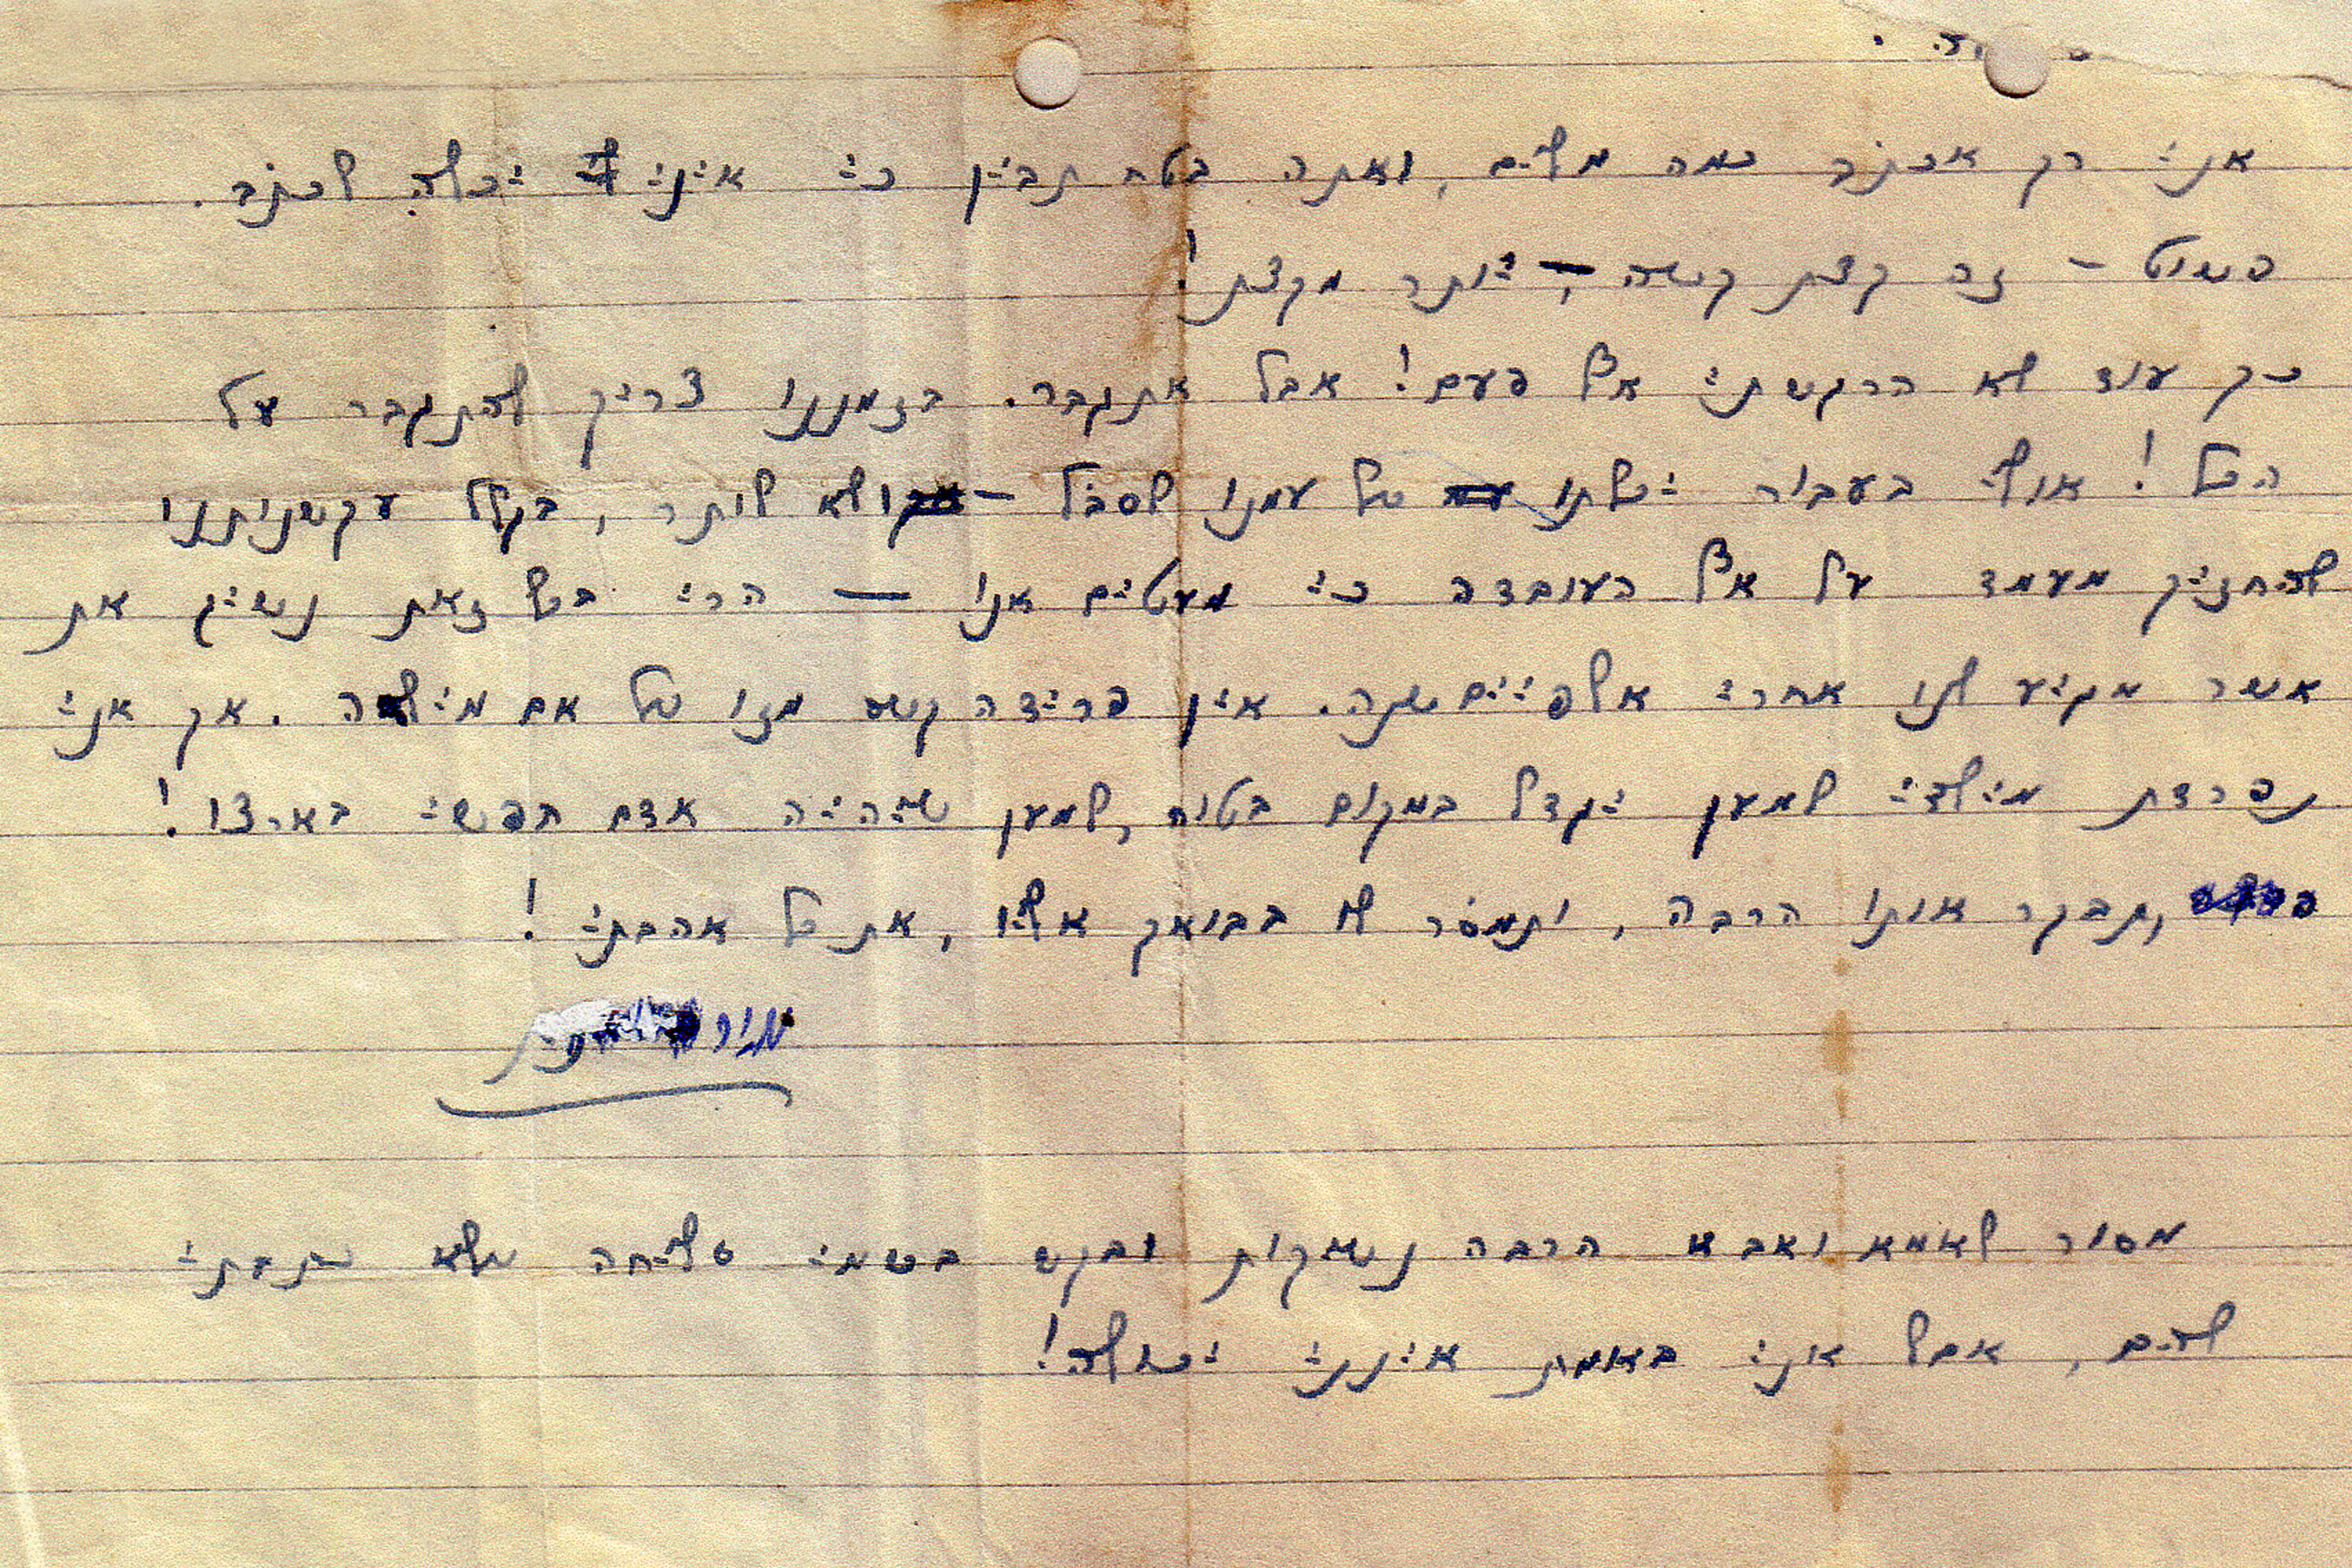 אני רק אכתוב כמה מלים, ואתה בטח תבין כי אינני יכולה לכתוב.
פשוט – זה קצת קשה, – יותר מקצת!
כך עוד לא הרגשתי אף פעם! אבל אתגבר. בזמננו צריך להתגבר על
הכל! אולי בעבור יכלתו של עמנו לסבול – ולא לותר, בגלל עקשנותנו
להחזיק מעמד על אף העובדה כי מעטים אנו – הרי בכל זאת נשיג את
אשר מגיע לנו אחרי אלפיים שנה. אין פרידה קשה מזו של אם מילדה. אך אני
נפרדת מילדי למען יגדל במקום בטוח, למען שיהיה אדם חפשי בארצו!
תבקר אותו הרבה, ותמסר לו בבואך אליו, את כל אהבתי!
מסור לאמא ואבא הרבה נשיקות ובקש בשמי סליחה שלא כתבתי
להם, אבל אני באמת אינני יכולה!